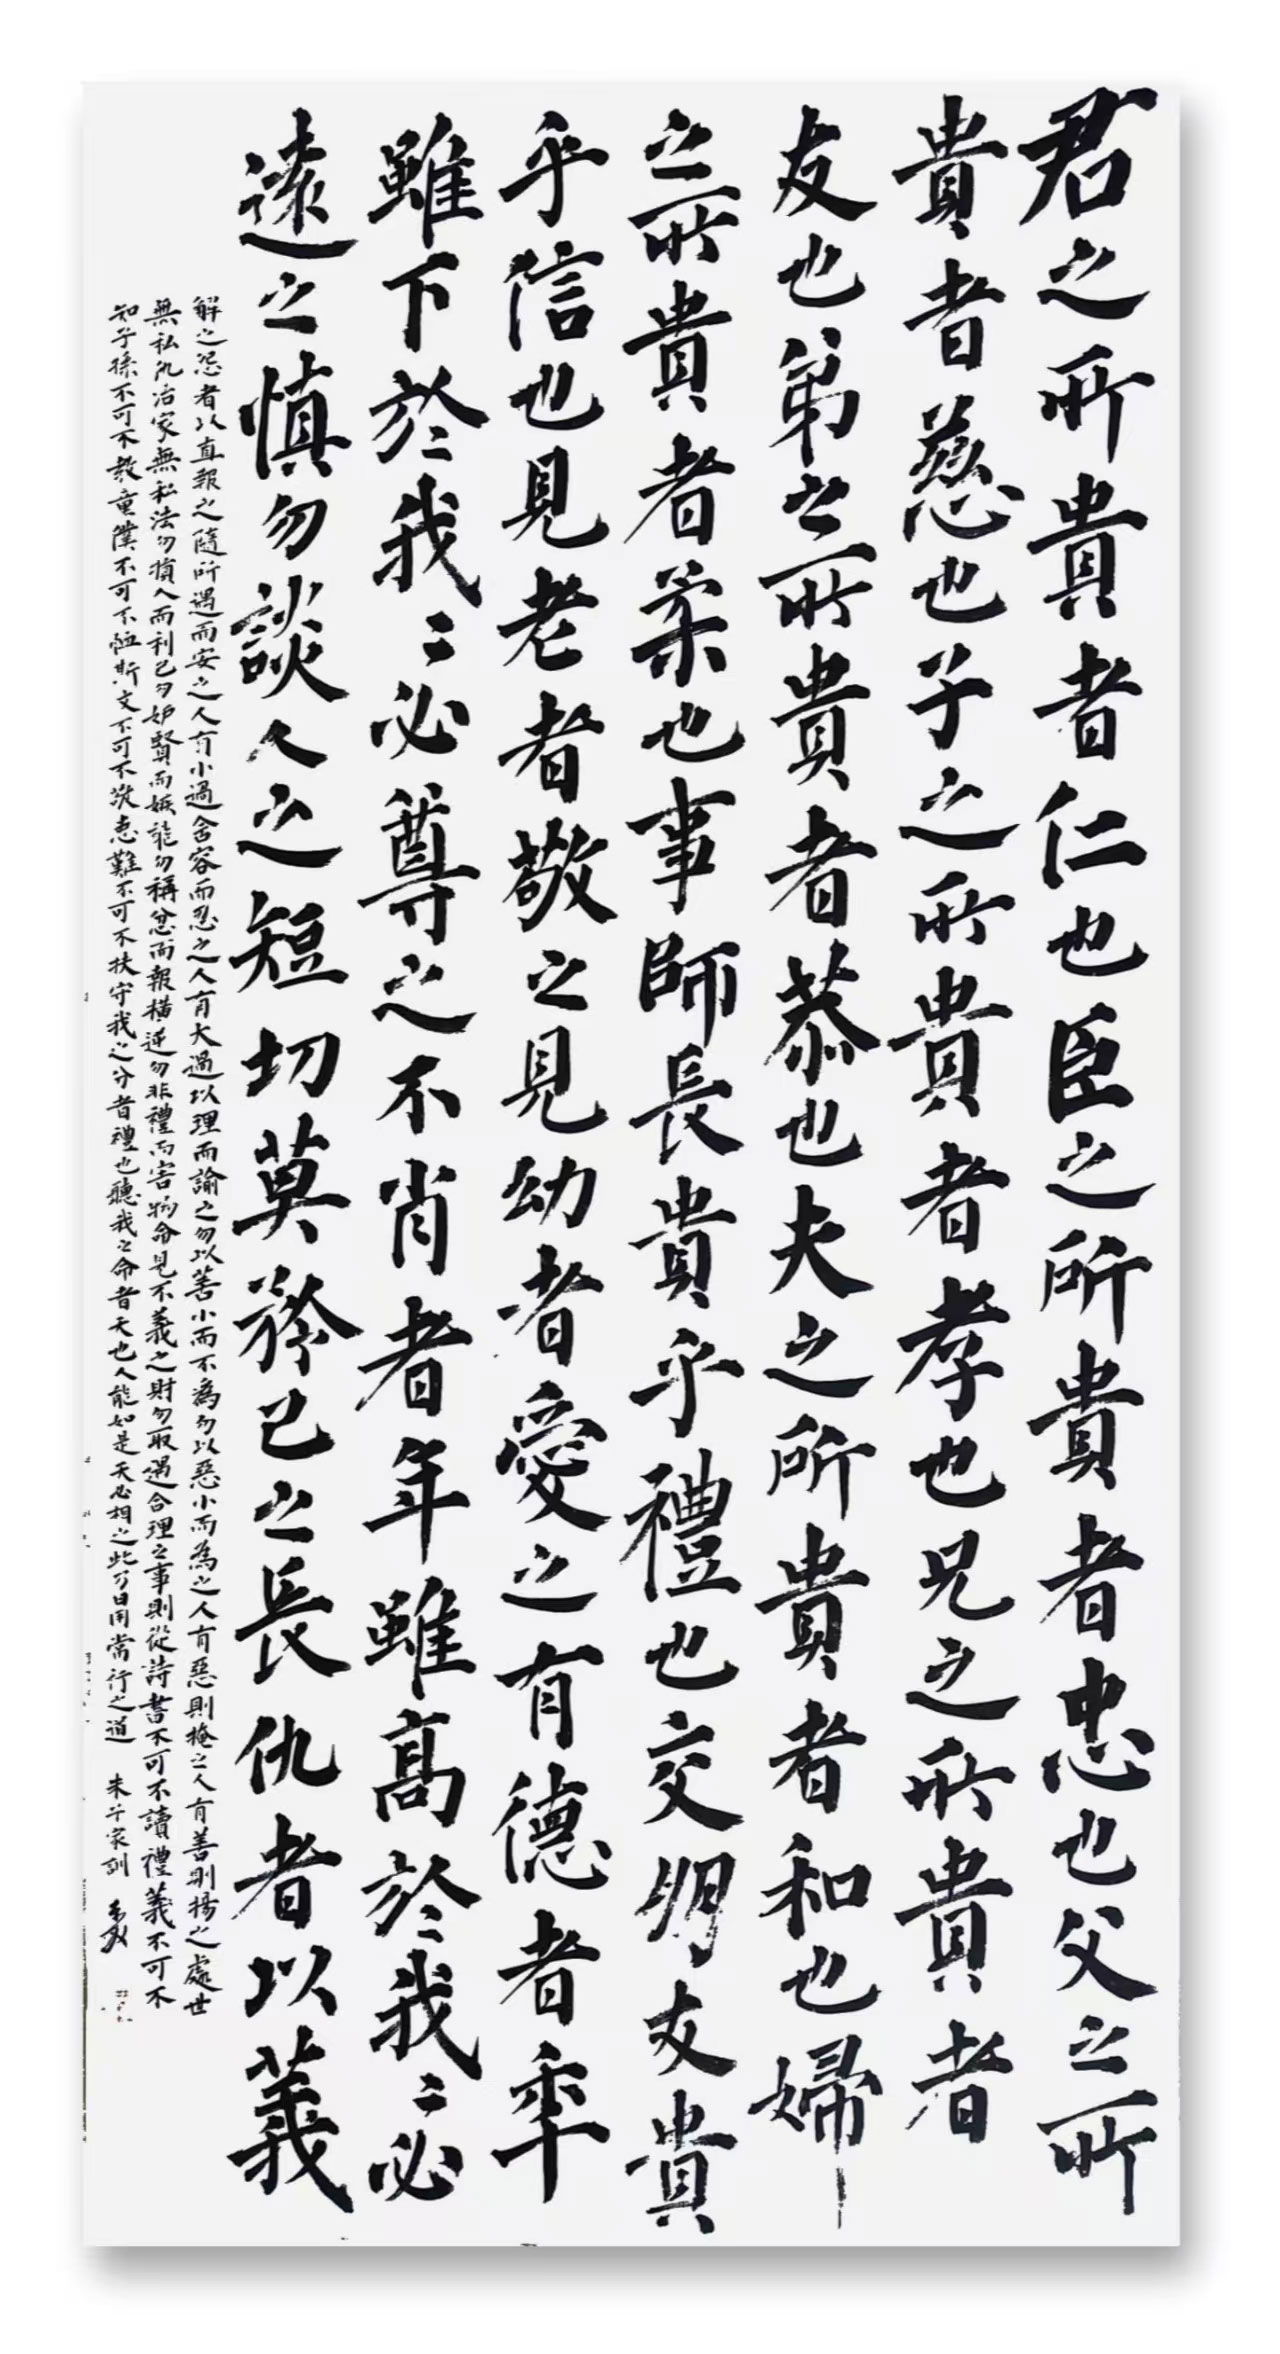 君之所貴者仁也臣之所貴者忠也父之所
貴者慈也子之所貴者孝也兄之所貴者
友也弟之所貴者恭也夫之所貴者和也婦
之所貴者柔也事師長貴乎禮也交朋友貴
乎信也見老者敬之見幼者愛之有德者年
雖下於我〻必尊之不肖者年雖高於我〻必
遠之慎勿談人之短切莫矜己之長仇者以義
解之怨者以直報之隨所遇而安之人有小過含容而忍之人有大過以理而諭之勿以善小而不為勿以惡小而為之人有惡則掩之人有善則揚之處世
無私仇治家無私法勿損人而利己勿妒賢而嫉能勿稱忿而報橫逆勿非禮而害物命見不義之財勿取遇合理之事則從詩書不可不讀禮義不可不
知子孫不可不教童僕不可不恤斯文不可不敬患難不可不扶守我之分者禮也聽我之命者天也人能如是天必相之此乃日用常行之道 朱子家訓